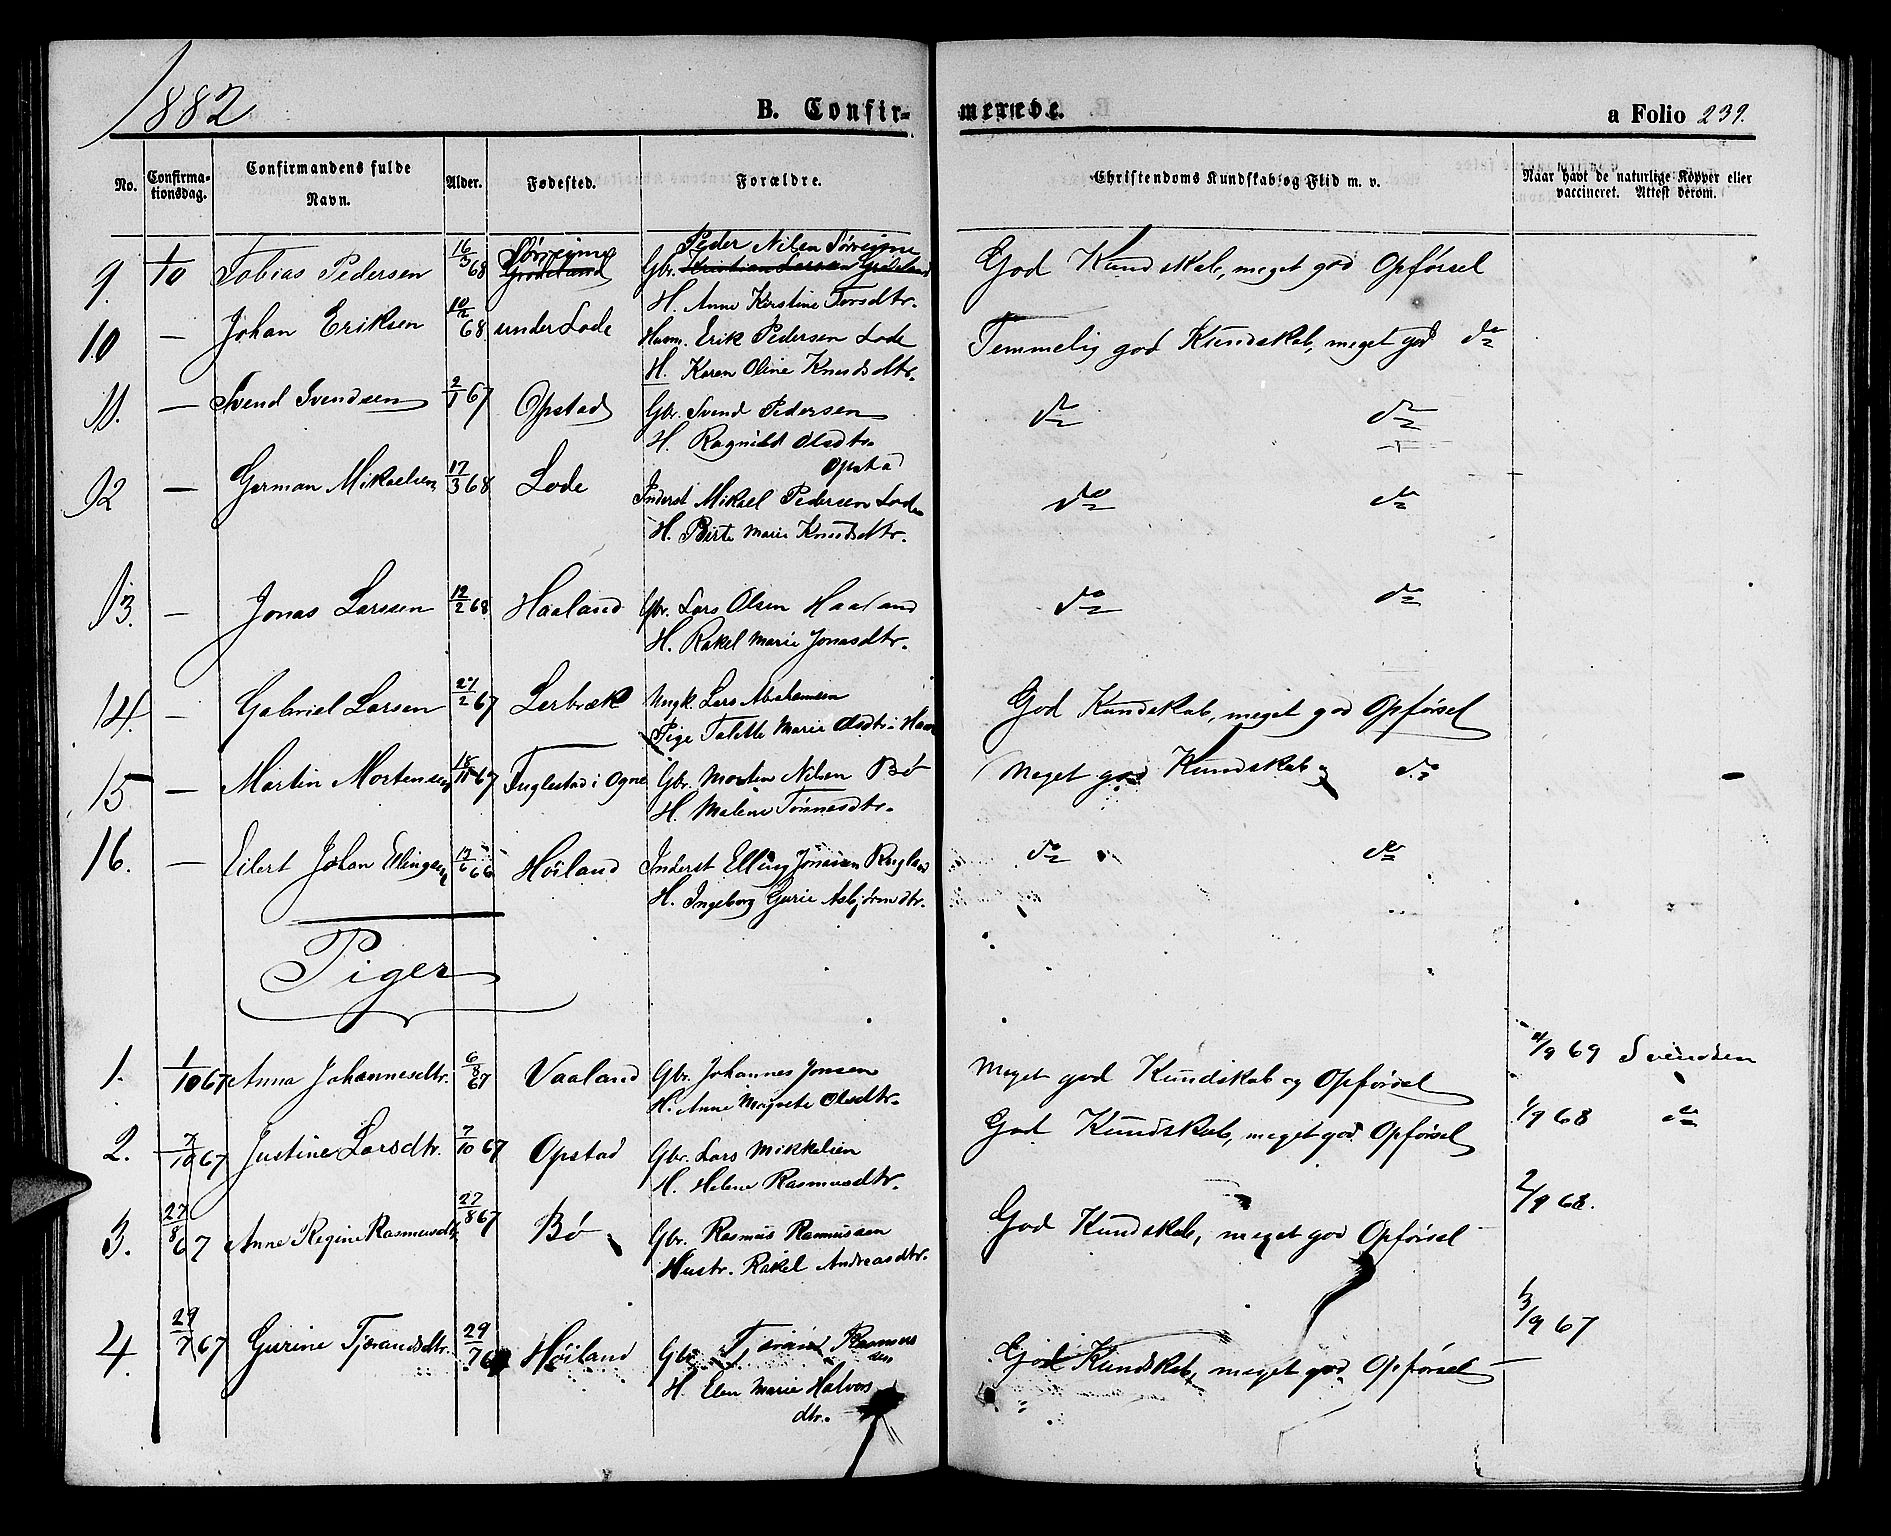 1882
B. Confir-merede.
a Folio 239.
No. Confirma-tionsdag. Confirmandens fulde Navn. Alder. Fødested. Forældre. Christendoms Kundskab og Flid m. v. Naar havt de naturlige Kopper eller vaccineret. Attest derom.
9. 1/10 Tobias Pedersen 16/3 68 Sørreime Grødeland Gbr. Peder Nilsen Sørreime Kristian Larsen Grødeland God Kundskab, meget god Opførsel
H. Anne Kirstine Torsdtr.
10 — Johan Eriksen 10/2 68 under Lode Husm. Erik Pedersen Lode Temmelig god Kundskab, meget god do
H. Karen Oline Knudsdtr.
11. — Svend Svendsen 2/1 67 Opstad Gbr. Svend Pedersen do do
H. Ragnild Olsdtr. Opstad
12 — German Mikaelsen 17/3 68 Lode Inderst Mikael Pedersen Lode do do
H. Birte Marie Knudsdtr.
13. — Jonas Larsen 12/2 68 Haaland Gbr. Lars Olsen Haaland do do
H. Rakel Marie Jonasdtr.
14. — Gabriel Larsen 21/2 67 Lerbræk Ungk. Lars Abrahamsen God Kundskab, meget god Opførsel
Pige Talette Marie Olsdtr.
15 — Martin Mortensen 18/11 67 Fuglestad i Ogne Gbr. Morten Nilsen Bø Meget god Kundskab do
H. Malene Tønnesdtr.
16. — Eilert Johan Ellingsen 66 Høiland Inderst Elling Jonasen do do
H. Ingeborg Gurie Asbjørnsdtr.
Piger
1. 1/10 67 Anna Johannesdtr. 6/8 67 Vaaland Gbr. Johannes Jonsen Meget god Kundskab og Opførsel /9 69 Svendsen
H. Anne Margrete Olsdtr.
2. 7/10 67 Justine Larsdtr. 7/10 67 Opstad Gbr. Lars Mikkelsen God Kundskab, meget god Opførsel 1/9 68 do
H. Helene Rasmusdtr.
3. 27/8 67 Anne Regine Rasmusdtr. 27/8 67 Bø Gbr. Rasmus Rasmussen God Kundskab, meget god Opførsel 2/9 68.
Hustr. Rakel Andreasdtr.
4. 29/7 67 Gurine Tjerandsdtr. 29/7 6 Høiland Gbr. Tjerand Rasmussen God Kundskab, meget god Opførsel — /9 67
H. Elen Marie Halvorsdtr.